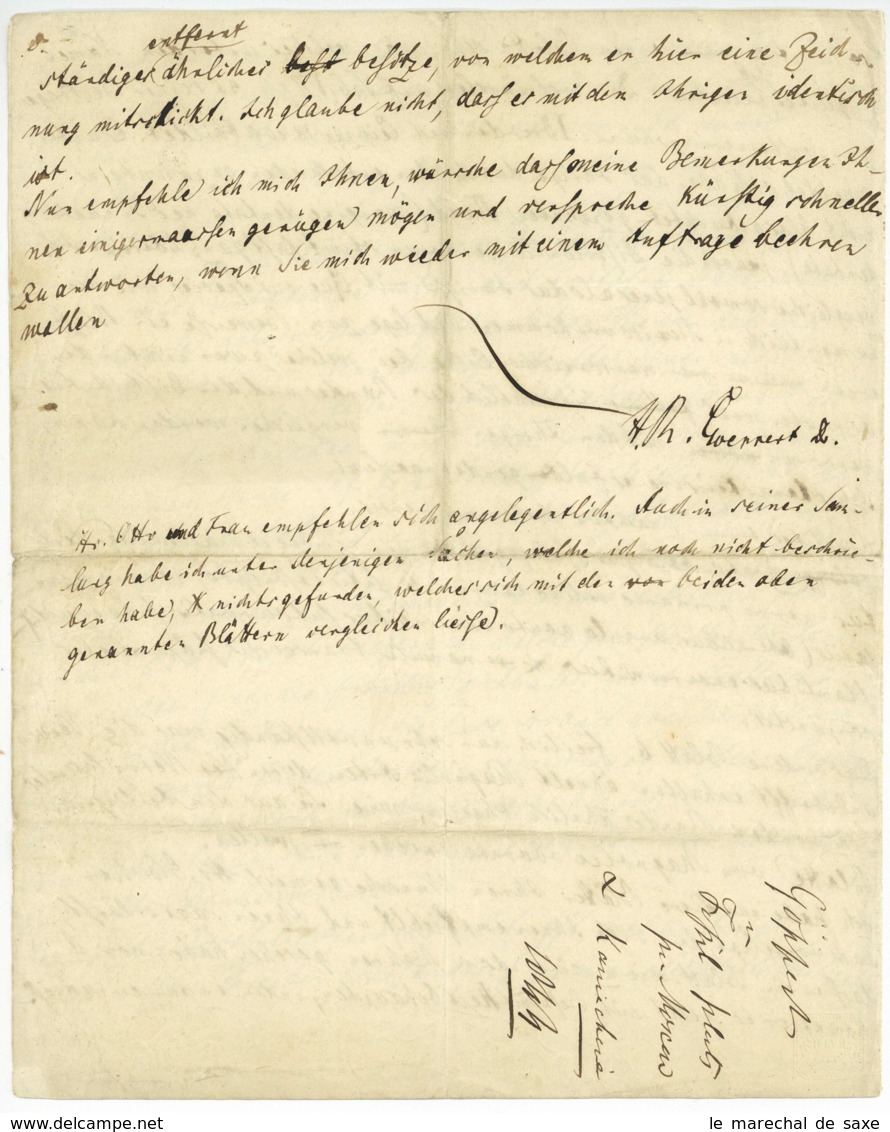 entfernt
ständiges ähnliches besitze, von welchem er hier eine Zeich-
nung mitschickt. Ich glaube nicht, dass es mit dem Ihrigen identisch
ist.
Nun empfehle ich mich Ihnen, wünsche dass meine Bemerkungen Ih-
nen einigermaassen genügen mögen und verspreche künftig schneller
zu antworten, wenn Sie mich wieder mit einem Auftrage beehren
wollen
H. R. Goeppert
Hr. Otto und Frau empfehlen sich angelegentlich. Auch in seiner Sam-
lung habe ich unter denjenigen Sachen, welche ich noch nicht beschrie-
ben habe, nichts gefunden, welches sich mit den beiden oben
genannten Blättern vergleichen liesse.
Göppert
1844
le marechal de saxe